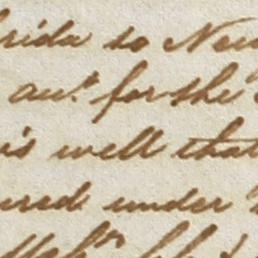 rida to New
aus. for the
is well that
ured under